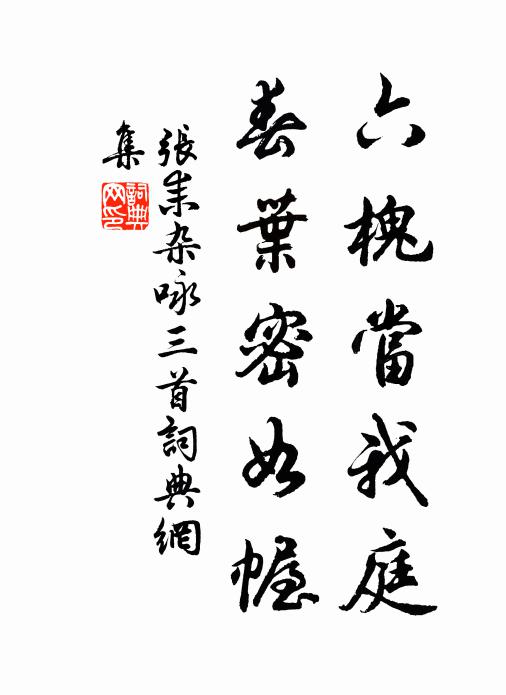 六槐當我庭
春葉密如幄
張耒杂咏三首詞典網
集
詞典
网印